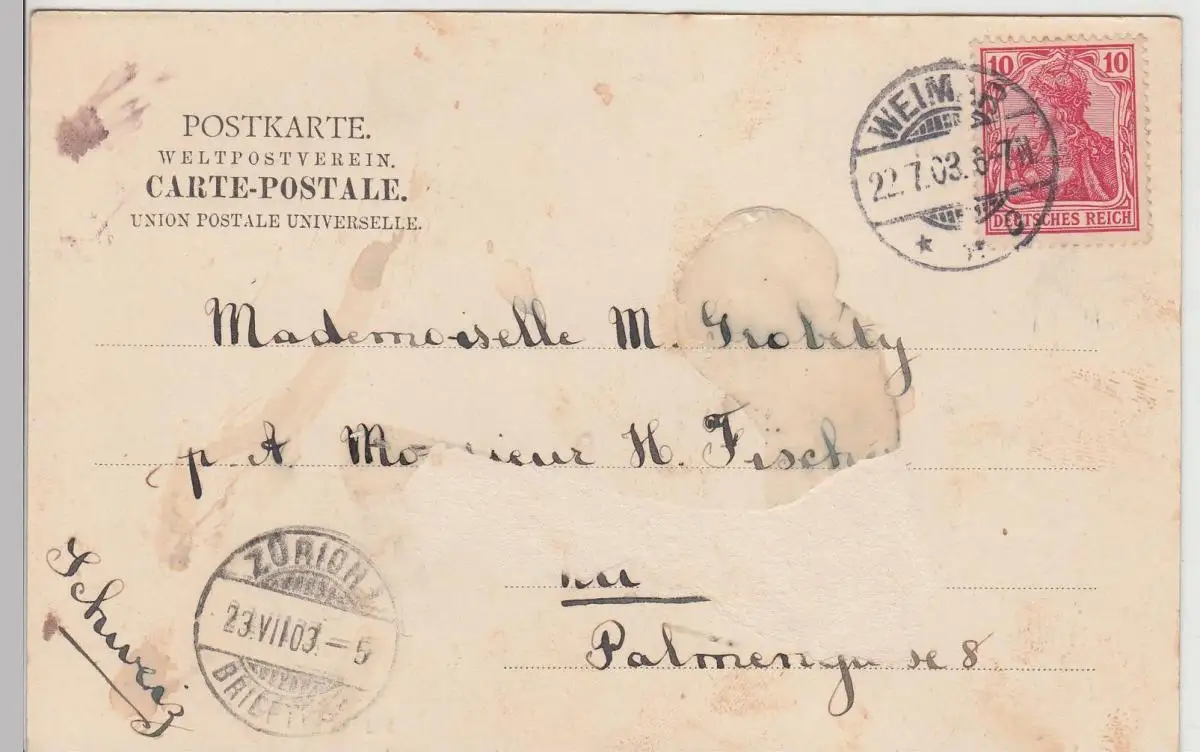 POSTKARTE.
WELTPOSTVEREIN.
CARTE-POSTALE.
UNION POSTALE UNIVERSELLE.
10 10
DEUTSCHES REICH
WEIM
22.7.03. 6-7N.
Mademoiselle M. Grobéty
p. A. Monsieur H. Fisch
Palmeng se 8
Schweiz
ZÜRICH
23.VII.03.–5
BRIEFTR